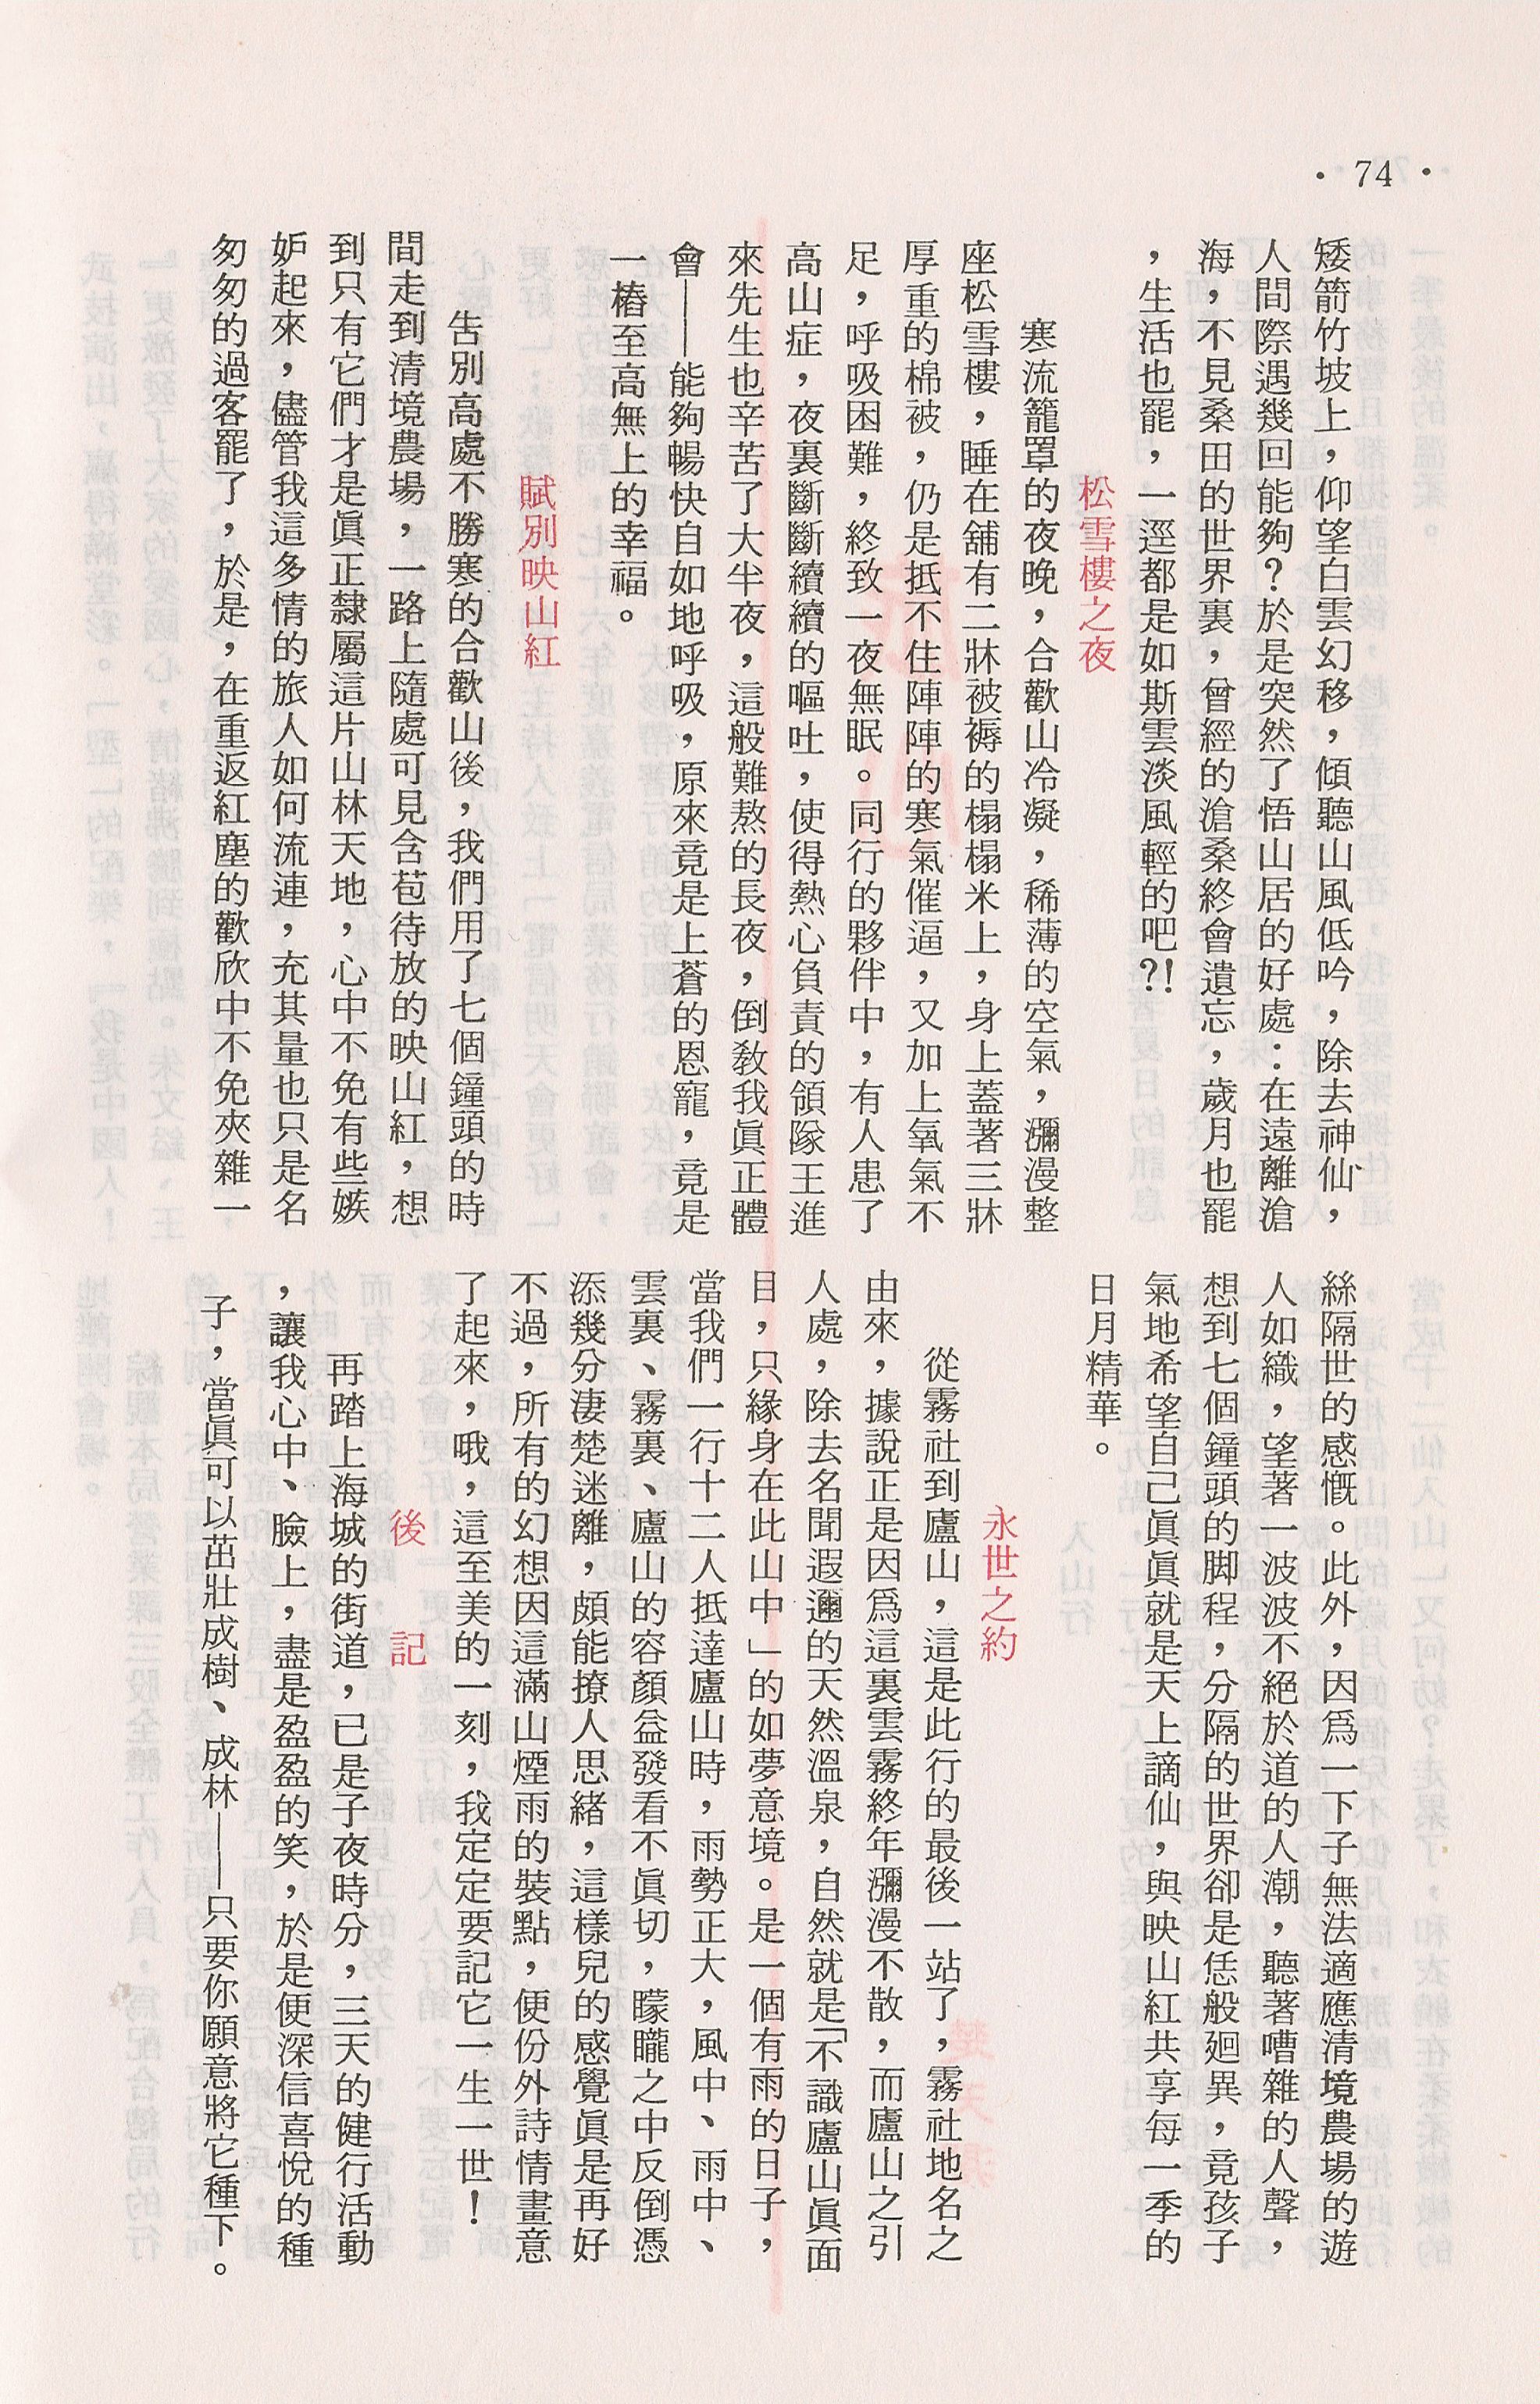 • 74 •
矮箭竹坡上，仰望白雲幻移，傾聽山風低吟，除去神仙，
人間際遇幾回能夠？於是突然了悟山居的好處：在遠離滄
海，不見桑田的世界裏，曾經的滄桑終會遺忘，歲月也罷
，生活也罷，一逕都是如斯雲淡風輕的吧?!
松雪樓之夜
寒流籠罩的夜晚，合歡山冷凝，稀薄的空氣，瀰漫整
座松雪樓，睡在舖有二牀被褥的榻榻米上，身上蓋著三牀
厚重的棉被，仍是抵不住陣陣的寒氣催逼，又加上氧氣不
足，呼吸困難，終致一夜無眠。同行的夥伴中，有人患了
高山症，夜裏斷斷續續的嘔吐，使得熱心負責的領隊王進
來先生也辛苦了大半夜，這般難熬的長夜，倒敎我眞正體
會——能夠暢快自如地呼吸，原來竟是上蒼的恩寵，竟是
一樁至高無上的幸福。
賦別映山紅
告別高處不勝寒的合歡山後，我們用了七個鐘頭的時
間走到清境農場，一路上隨處可見含苞待放的映山紅，想
到只有它們才是眞正隸屬這片山林天地，心中不免有些嫉
妒起來，儘管我這多情的旅人如何流連，充其量也只是名
匆匆的過客罷了，於是，在重返紅塵的歡欣中不免夾雜一
絲隔世的感慨。此外，因爲一下子無法適應清境農場的遊
人如織，望著一波波不絕於道的人潮，聽著嘈雜的人聲，
想到七個鐘頭的脚程，分隔的世界卻是恁般廻異，竟孩子
氣地希望自己眞眞就是天上謫仙，與映山紅共享每一季的
日月精華。
永世之約
從霧社到廬山，這是此行的最後一站了，霧社地名之
由來，據說正是因爲這裏雲霧終年瀰漫不散，而廬山之引
人處，除去名聞遐邇的天然溫泉，自然就是「不識廬山眞面
目，只緣身在此山中」的如夢意境。是一個有雨的日子，
當我們一行十二人抵達廬山時，雨勢正大，風中、雨中、
雲裏、霧裏、廬山的容顏益發看不眞切，矇矓之中反倒憑
添幾分淒楚迷離，頗能撩人思緒，這樣兒的感覺眞是再好
不過，所有的幻想因這滿山煙雨的裝點，便份外詩情畫意
了起來，哦，這至美的一刻，我定定要記它一生一世！
後　記
再踏上海城的街道，已是子夜時分，三天的健行活動
，讓我心中、臉上，盡是盈盈的笑，於是便深信喜悅的種
子，當眞可以茁壯成樹、成林——只要你願意將它種下。